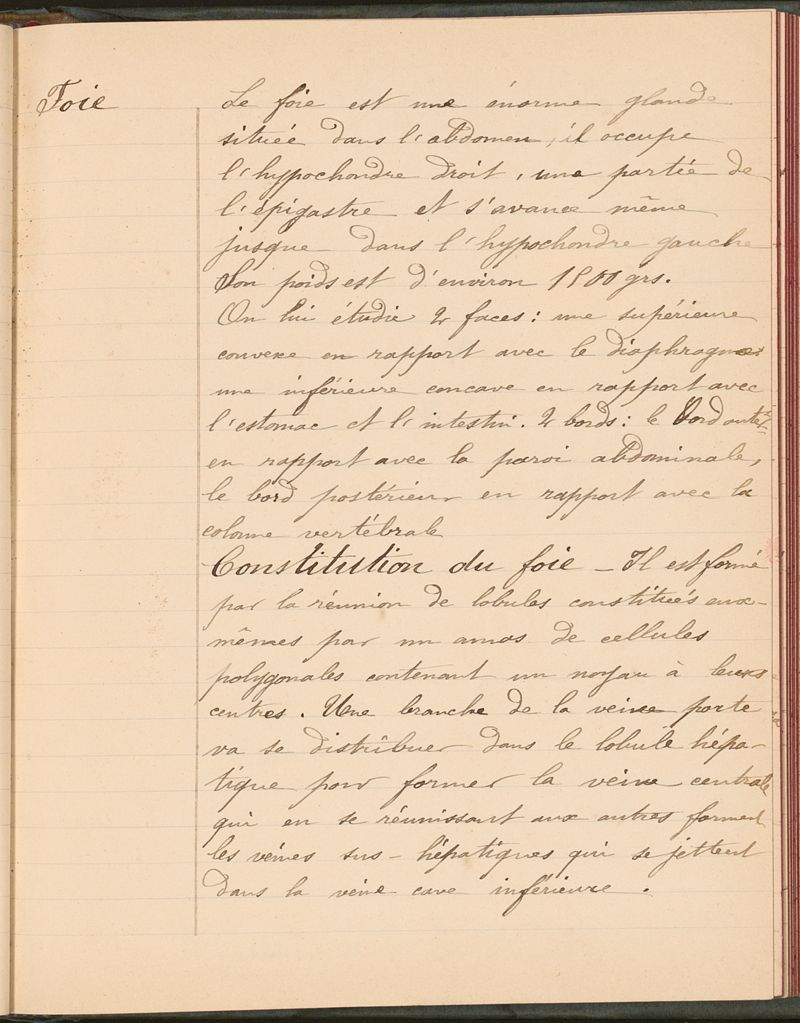 Foie
Le foie est une énorme glande
située dans l'abdomen, il occupe
l'hypochondre droit, une partie de
l'épigastre et s'avance même
jusque dans l'hypochondre gauche
Son poids est d'environ 1500 grs.
On lui étudie 2 faces : une supérieure
convexe en rapport avec le diaphragme
une inférieure concave en rapport avec
l'estomac et l'intestin. 2 bords : le bord antér-
en rapport avec la paroi abdominale,
le bord postérieur en rapport avec la
colonne vertébrale
Constitution du foie _ Il est formé
par la réunion de lobules constitués eux-
mêmes par un amas de cellules
polygonales contenant un noyau à leurs
centres. Une branche de la veine porte
va se distribuer dans le lobule hépa-
tique pour former la veine centrale
qui en se réunissant aux autres forment
les veines sus-hépatiques qui se jettent
dans la veine cave inférieure.